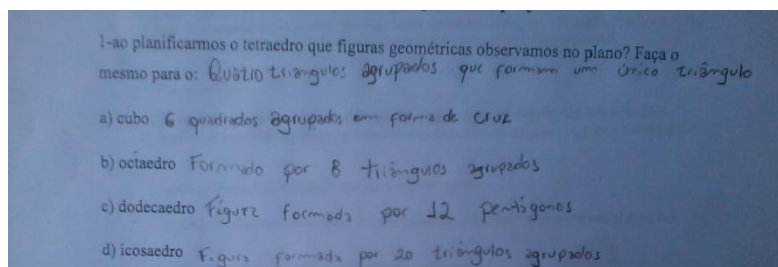 1-ao planificarmos o tetraedro que figuras geométricas observamos no plano? Faça o
mesmo para o: Quatro triangulos agrupados que formam um único triângulo
a) cubo 6 quadrados agrupados em forma de cruz
b) octaedro Formado por 8 triângulos agrupados
c) dodecaedro Figura formada por 12 pentágonos
d) icosaedro Figura formada por 20 triângulos agrupados